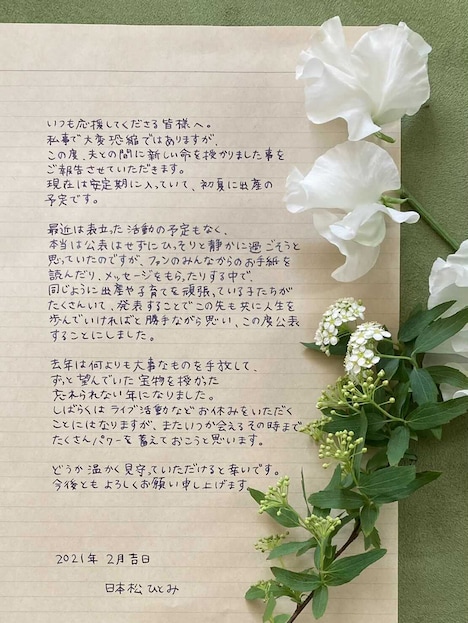 いつも応援してくださる皆様へ。
私事で大変恐縮ではありますが、
この度、夫との間に新しい命を授かりました事を
ご報告させていただきます。
現在は安定期に入っていて、初夏に出産の
予定です。
最近は表立った活動の予定もなく、
本当は公表はせずにひっそりと静かに過ごそうと
思っていたのですが、ファンのみんなからのお手紙を
読んだり、メッセージをもらったりする中で、
同じように出産や子育てを頑張っている子たちが
たくさんいて、発表することでこの先も共に人生を
歩んでいければと勝手ながら思い、この度公表
することにしました。
去年は何よりも大事なものを手放して、
ずっと望んでいた宝物を授かった
忘れられない年になりました。
しばらくはライブ活動などお休みをいただく
ことにはなりますが、またいつか会えるその時まで
たくさんパワーを蓄えておこうと思います。
どうか温かく見守っていただけると幸いです。
今後ともよろしくお願い申し上げます。
2021年 2月吉日
日本松ひとみ